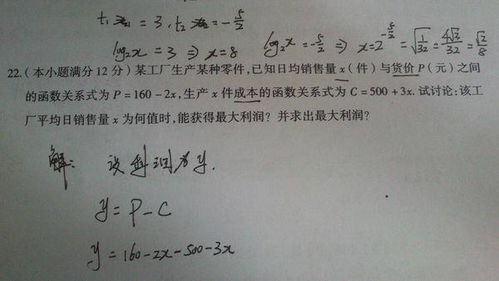 t₁ = 3, t₂ = -5/2
log₂x = 3 ⇒ x=8  log₂x = -5/2 ⇒ x=2^(-5/2) = √(1/32) = 4√2/32 = √2/8
22.(本小题满分12分)某工厂生产某种零件,已知日均销售量x(件)与货价P(元)之间
的函数关系式为P=160-2x,生产x件成本的函数关系式为C=500+3x.试讨论:该工
厂平均日销售量x为何值时,能获得最大利润?并求出最大利润?
解: 设利润为y.
y = P-C
y = 160-2x-500-3x